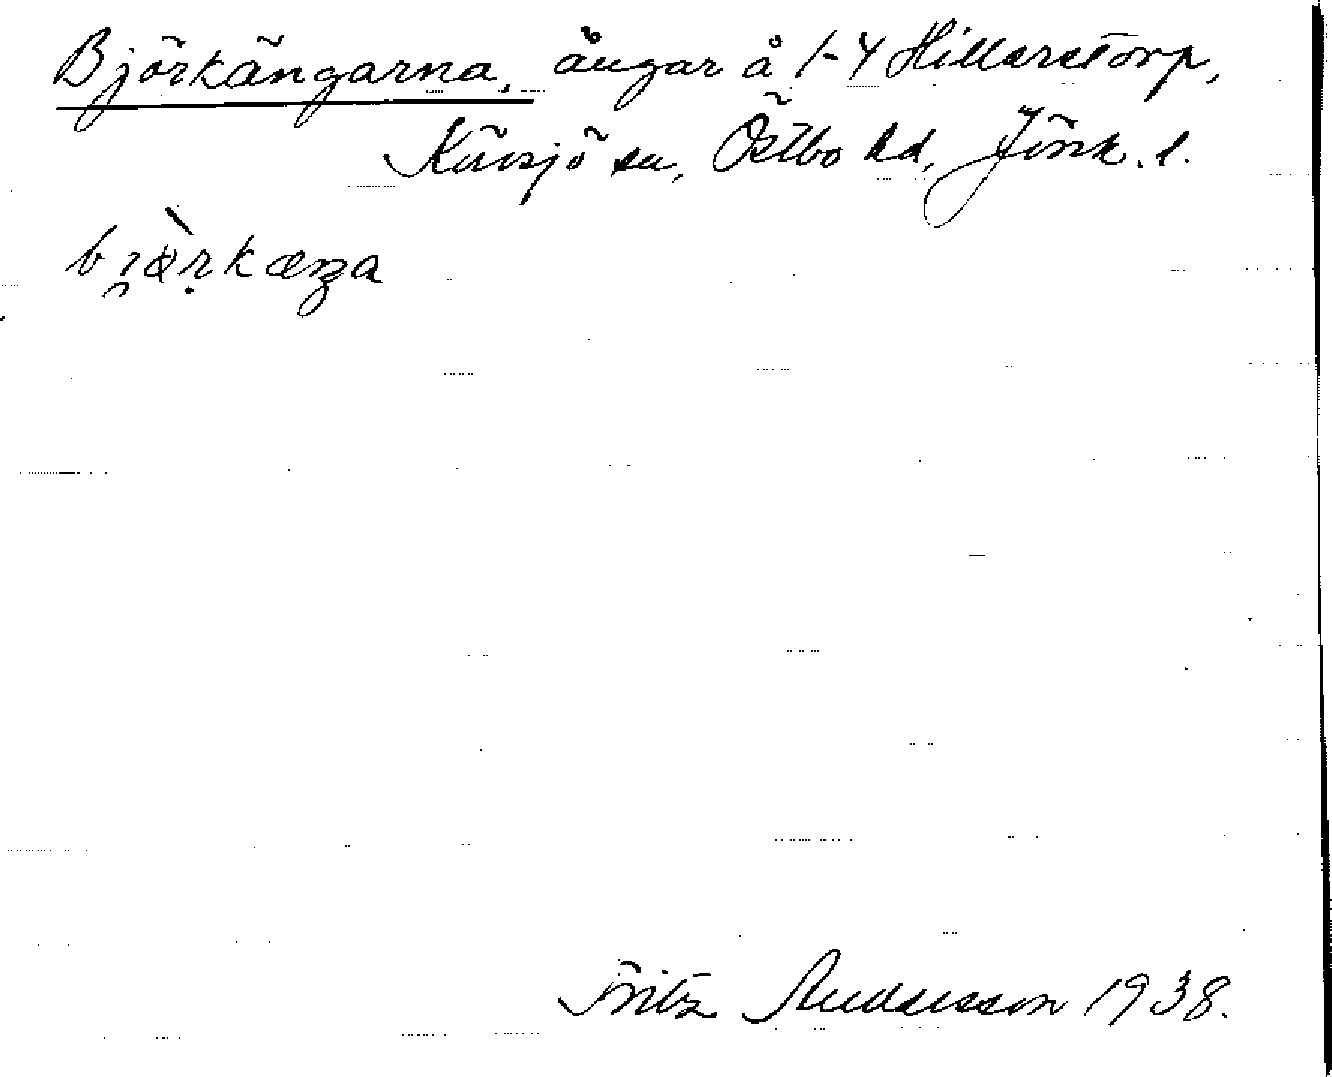 Björkängarna, ängar å 1-4 Hillerstorp,
Kävsjö sn, Östbo hd, Jönk. l.
bjæ̀rkæŋa
Fritz Andersson 1938.